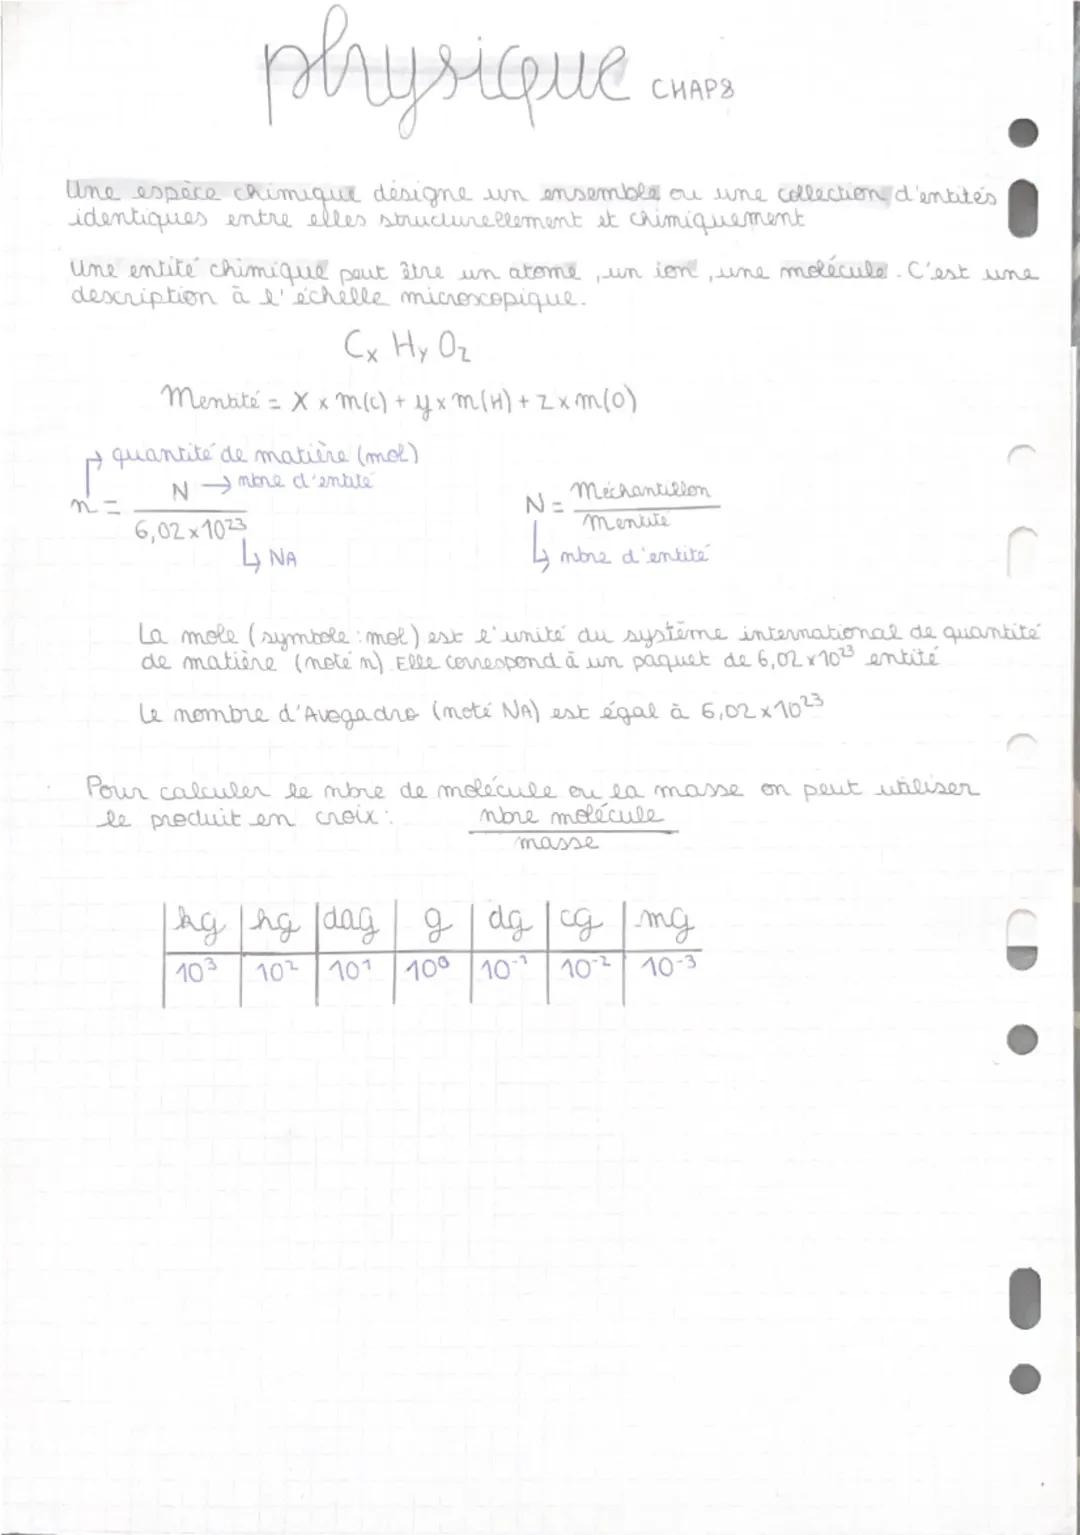 physique CHAP8
Une espèce chimique désigne un ensemble ou une collection d'entités
identiques entre elles structurellement et chimiquement
Une entité chimique peut être un atome, un ion, une molécule. C'est une
description à l'échelle microscopique.
Cx Hy Oz
Mentité = X x m(c) + y x m(H) + Z x m(O)
quantité de matière (mol)
n = N / 6,02 x 10²³
→ nbre d'entité
↳ NA
N = Méchantillon / Mentité
↳ nbre d'entité
La mole (symbole : mol) est l'unité du système international de quantité
de matière (noté n). Elle correspond à un paquet de 6,02 x 10²³ entité
Le nombre d'Avogadro (noté NA) est égal à 6,02 x 10²³
Pour calculer le nbre de molécule ou la masse on peut utiliser
le produit en croix : nbre molécule
masse
kg hg dag g dg cg mg
10³ 10² 10¹ 10⁰ 10⁻¹ 10⁻² 10⁻³